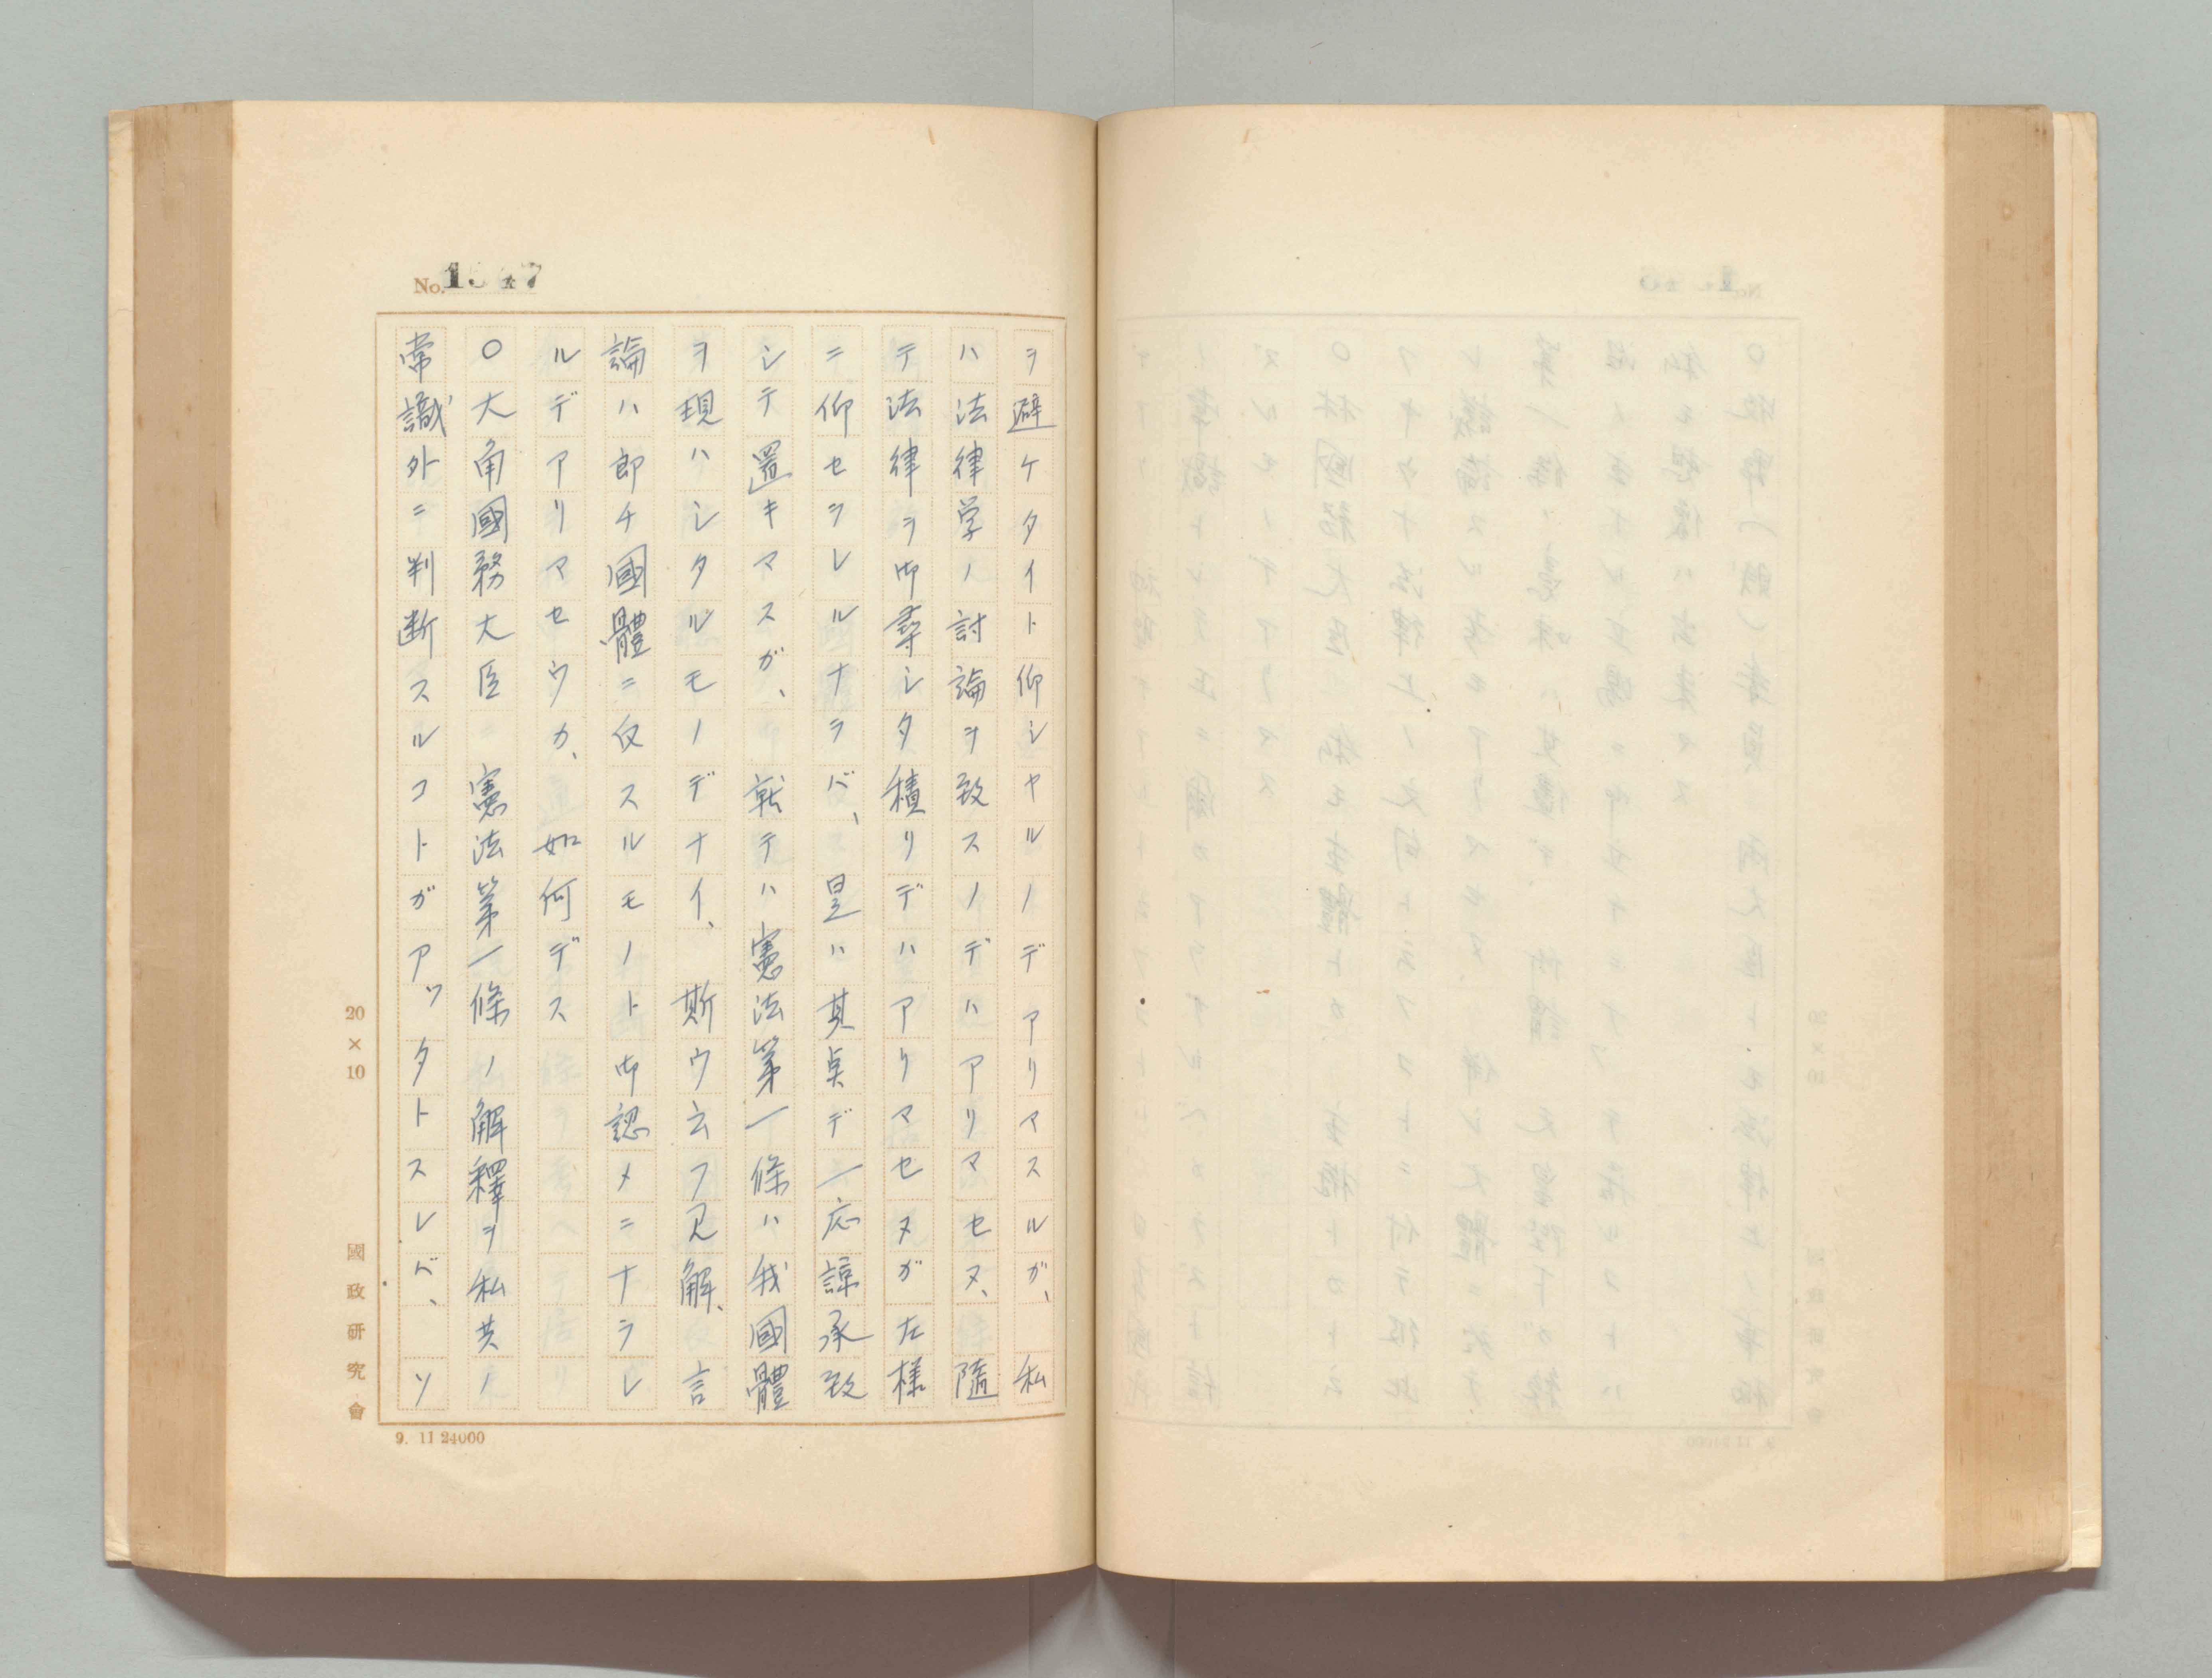 ヲ避ケタイト仰シヤルノデアリマスルガ、私
ハ法律学ノ討論ヲ致スノデハアリマセヌ、隨
テ法律ヲ御尋シタ積リデハアリマセヌガ左様
ニ仰セラレルナラバ、是ハ其点デ一応諒承致
シテ置キマスガ、就テハ憲法第一條ハ我國體
ヲ現ハシタルモノデナイ、斯ウ云フ見解、言
論ハ即チ國體ニ反スルモノト御認メニナラレ
ルデアリマセウカ、如何デス
○大角國務大臣 憲法第一條ノ解釋ヲ私共ノ
常識外ニ判断スルコトガアツタトスレバ、ソ
20×10
國政研究會
9. 11 24000